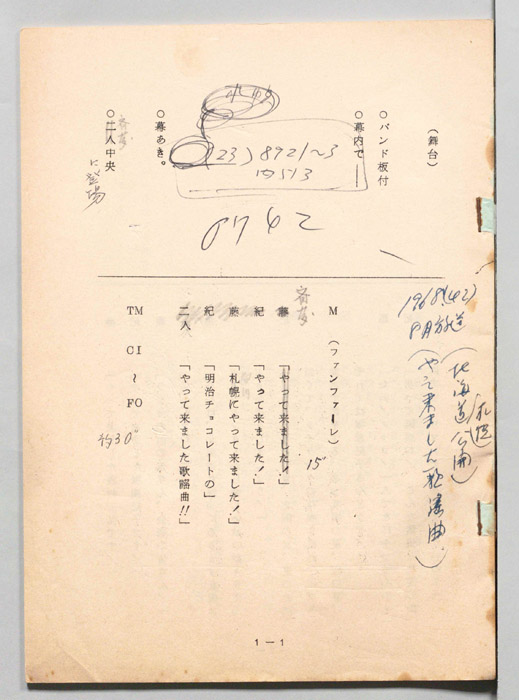 1968(42)
9月放送
(北海道公開)
(やって来ました歌謡曲)
(舞台)
○バンド板付
○幕内で――
(23) 8921~3
内513
0742
○幕あき。
○二人中央
に登場
M (ファンファーレ)
15"
藤 「やって来ました!」
紀 「やって来ました!」
藤 「札幌にやって来ました!」
紀 「明治チョコレートの」
二人 「やって来ました歌謡曲!!」
TM CI~FO
約30"
1-1